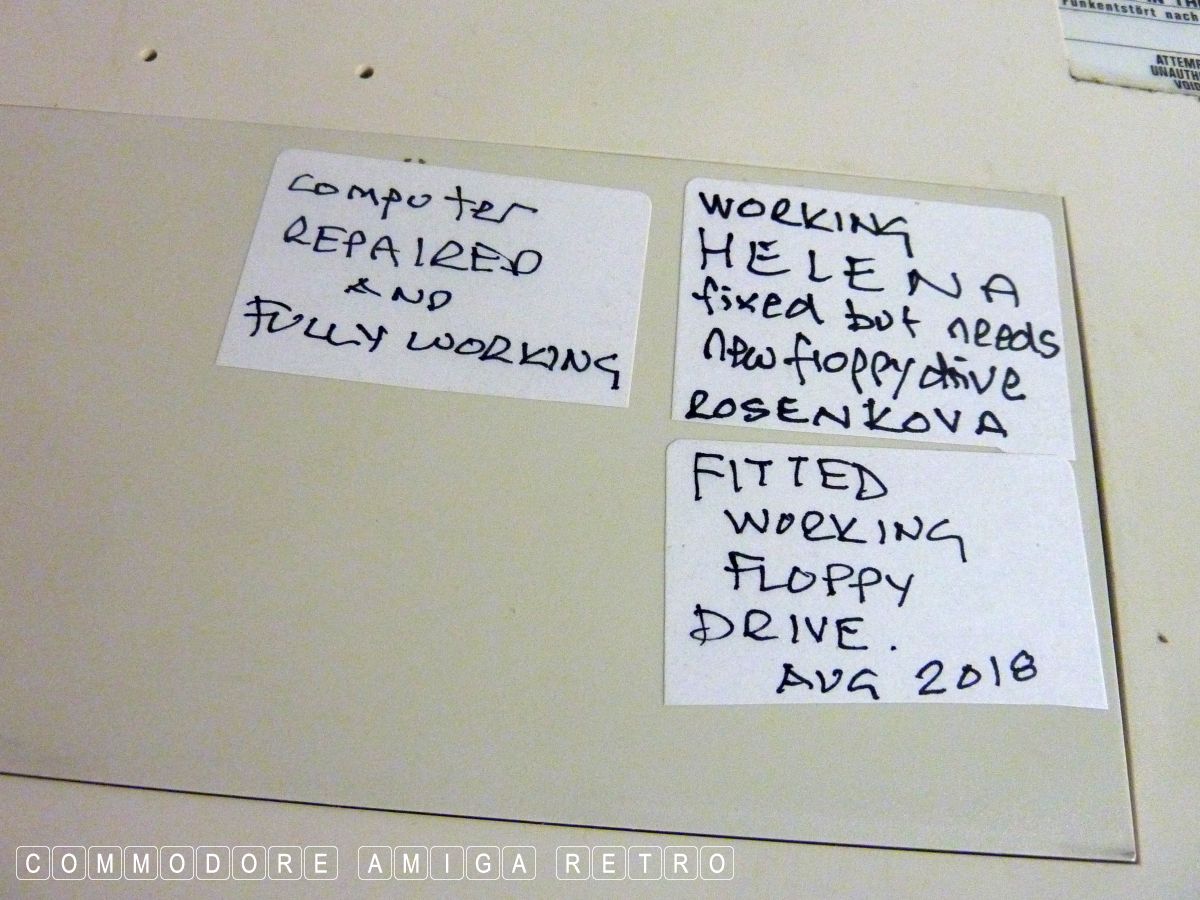 IN TH
Funkentstört nach
ATTEMP
UNAUTH
VOID
computer
REPAIRED
AND
FULLY WORKING
WORKING
HELENA
fixed but needs
new floppy drive
ROSENKOVA
FITTED
WORKING
FLOPPY
DRIVE.
AUG 2018
COMMODORE AMIGA RETRO